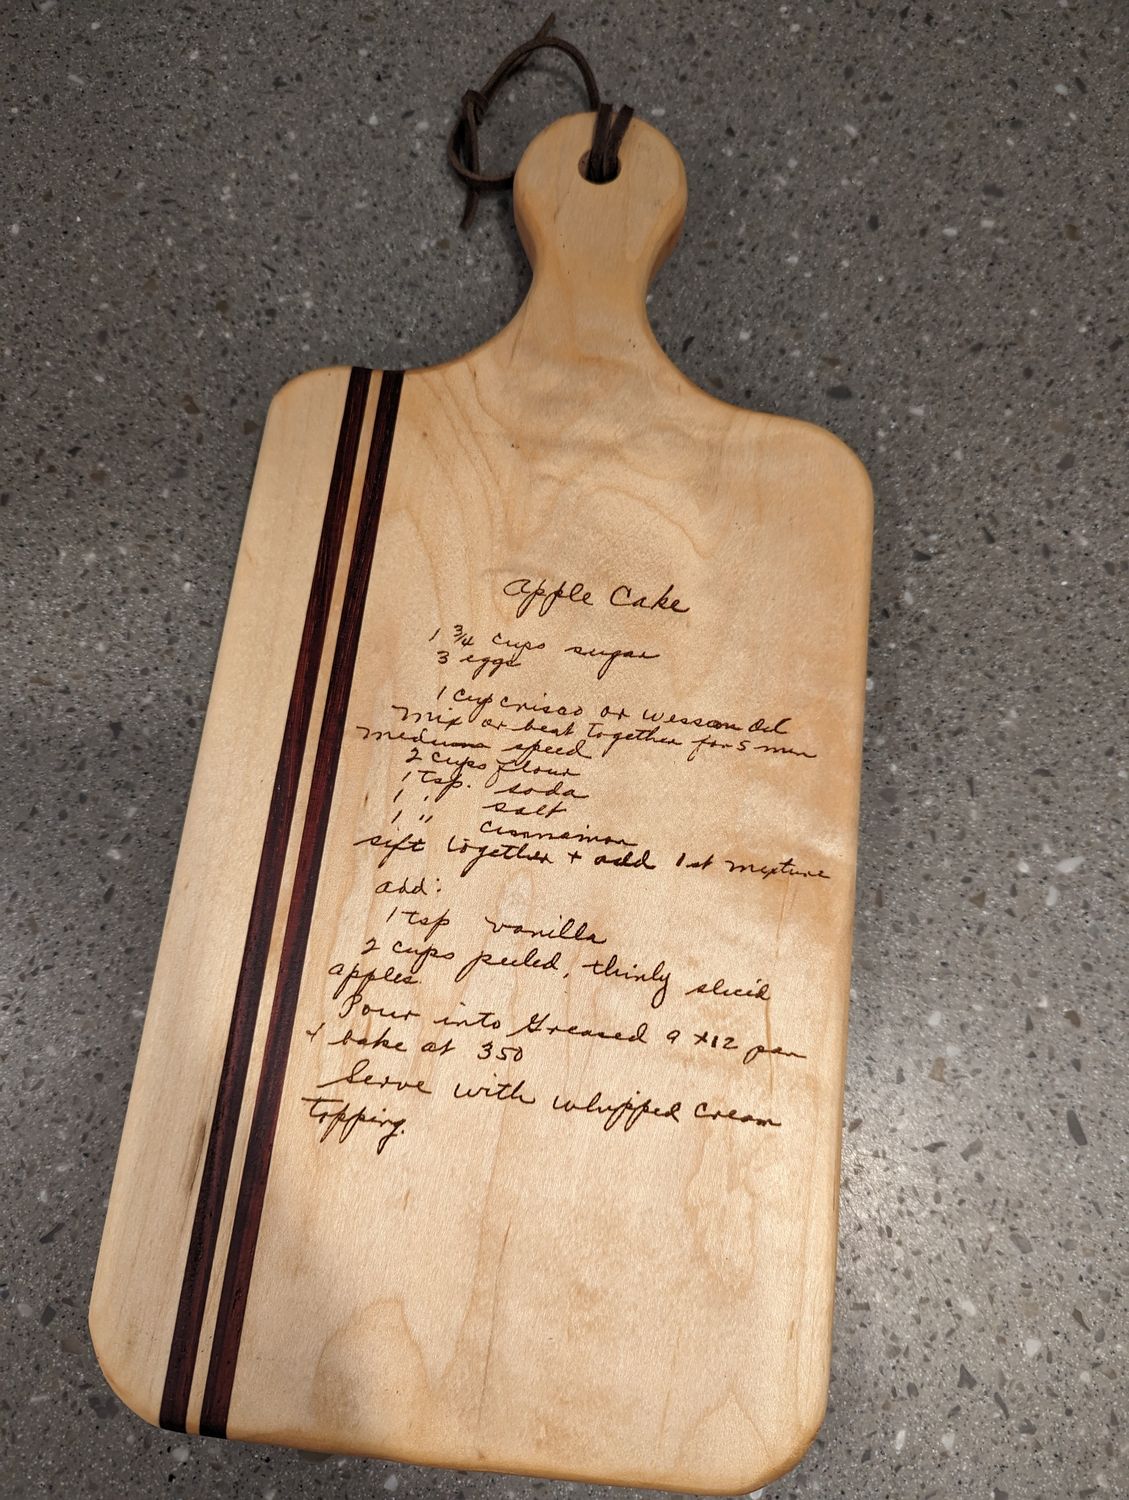 Apple Cake
1 3/4 cups sugar
3 eggs
1 cup crisco or wesson oil
mix or beat together for 5 min
medium speed
2 cups flour
1 tsp. soda
1 " salt
1 " cinnamon
sift together + add 1st mixture
add:
1 tsp vanilla
2 cups peeled, thinly sliced
apples.
Pour into Greased 9 x 12 pan
+ bake at 350
Serve with whipped cream
topping.